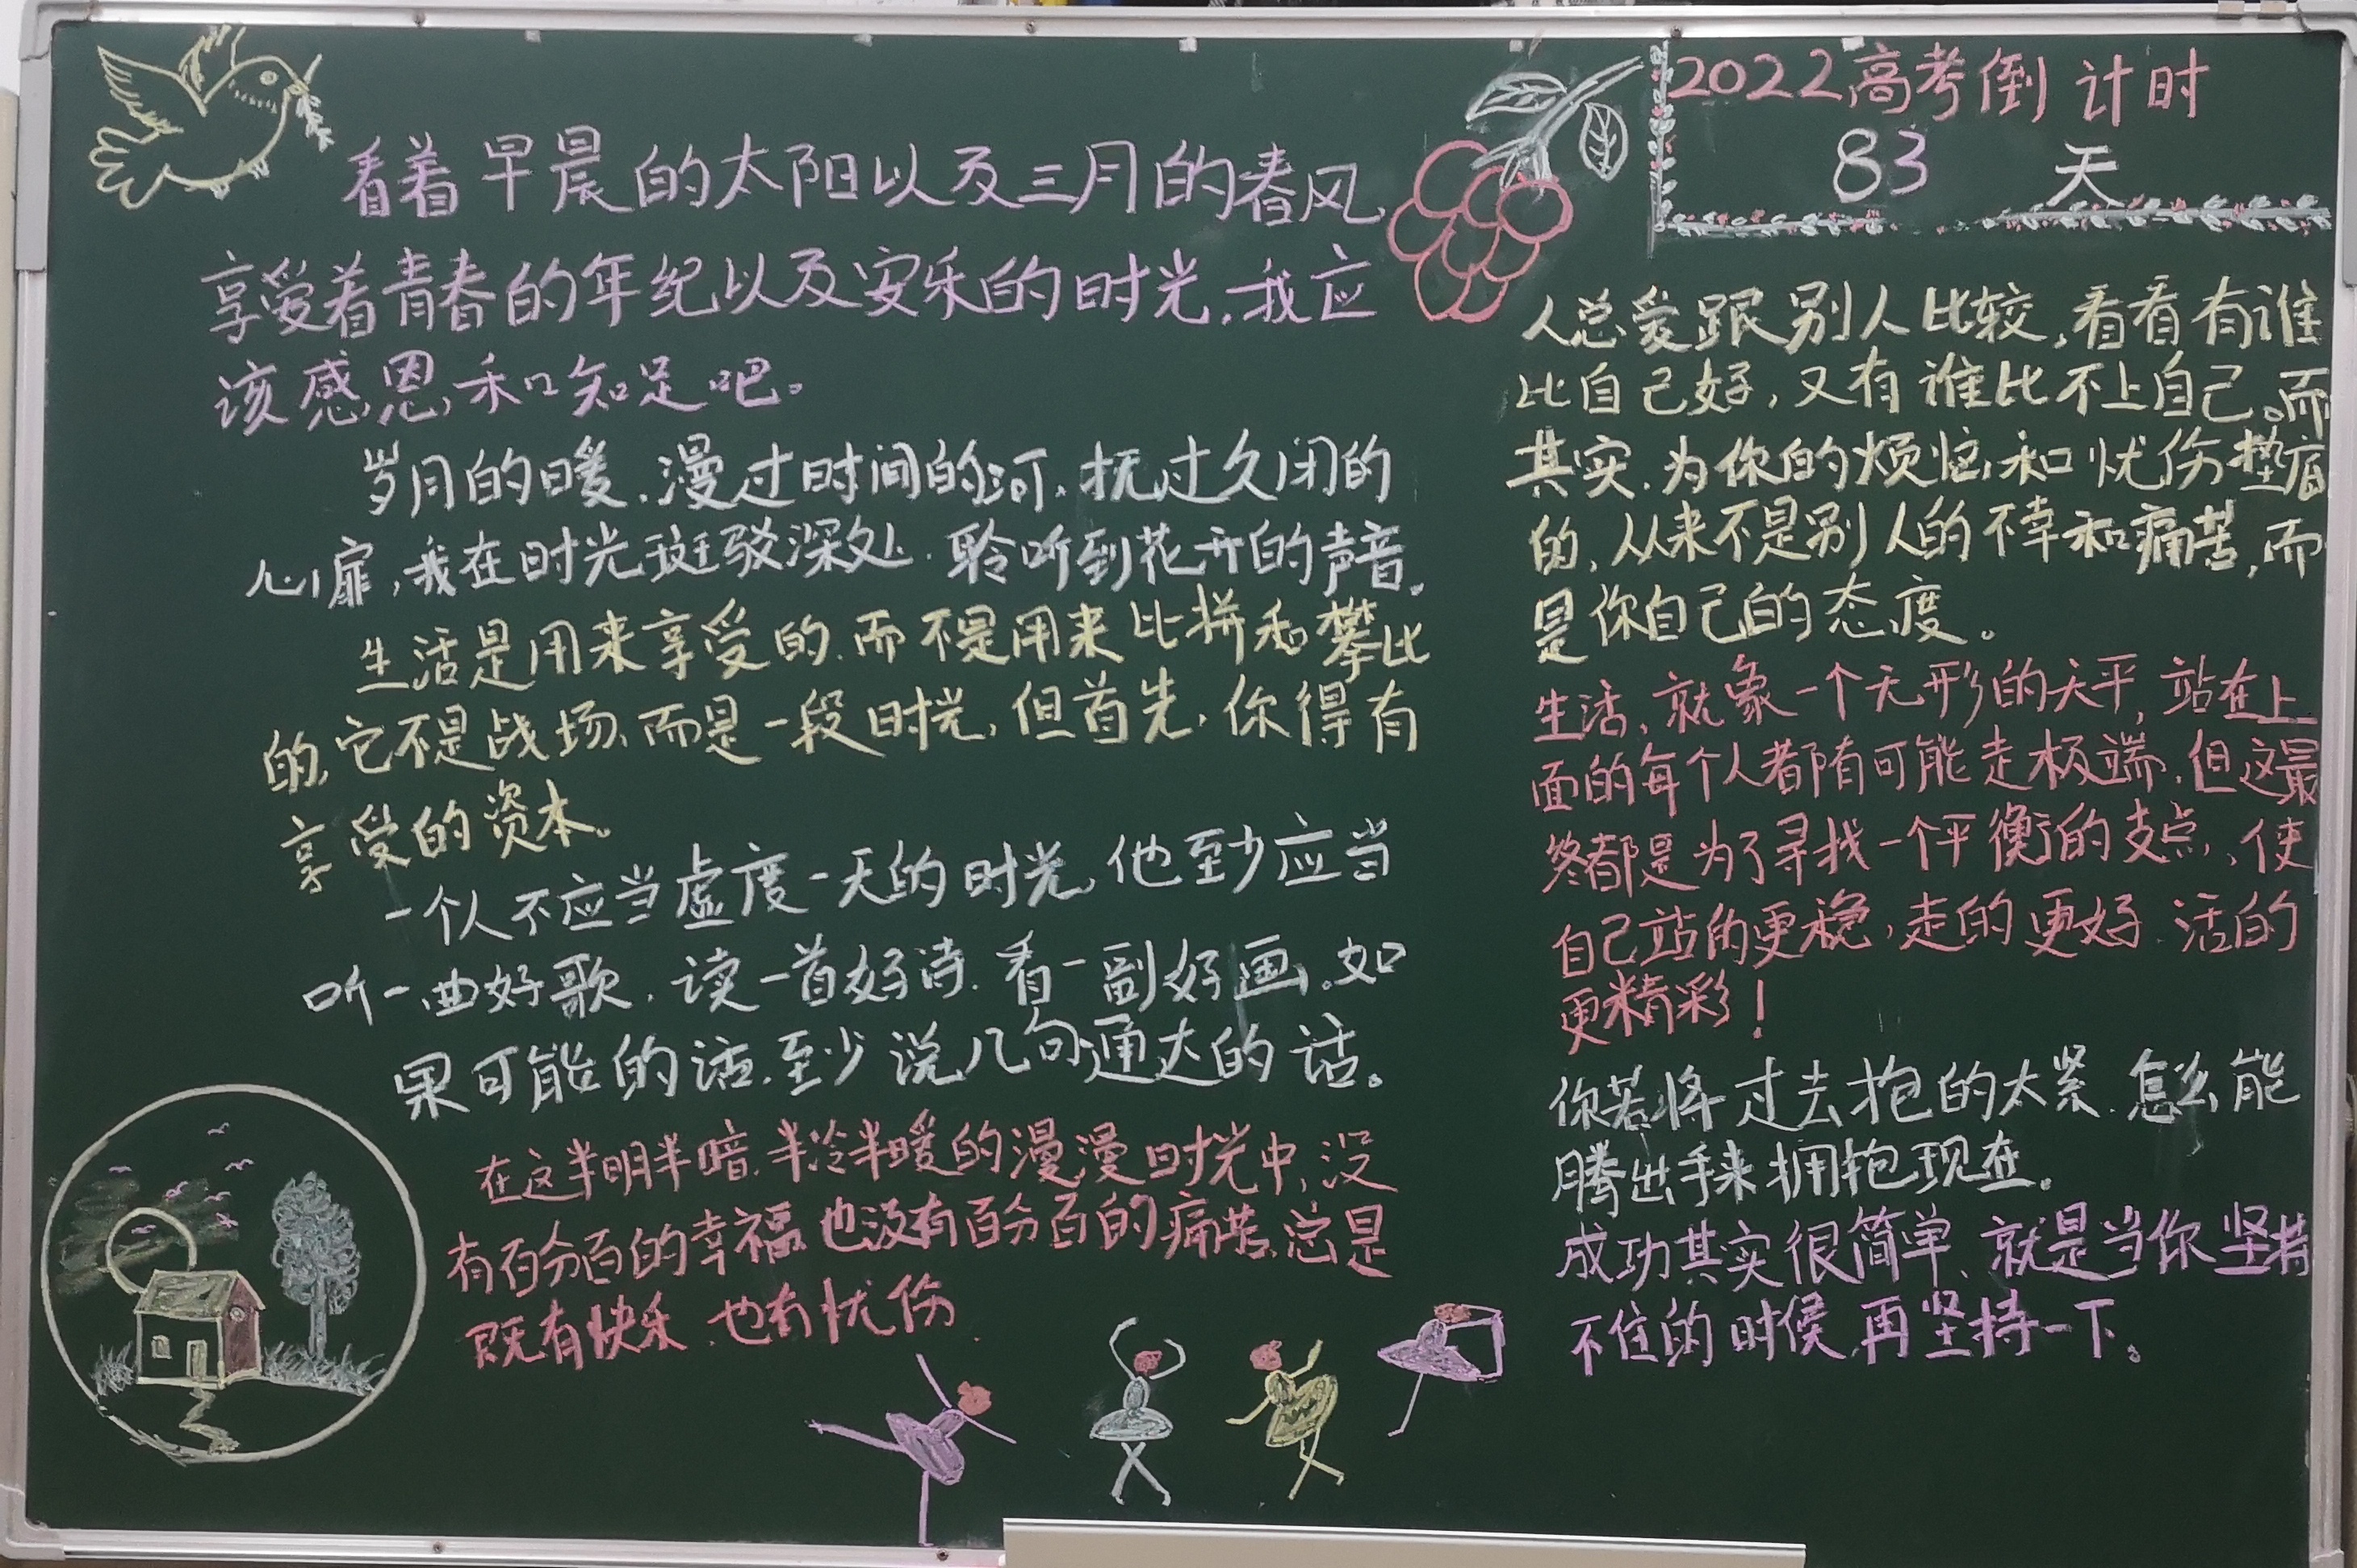 看着早晨的太阳以及三月的春风,
享受着青春的年纪以及安乐的时光,我应
该感恩和知足吧。
岁月的暖,漫过时间的河,抚过久闭的
心扉,我在时光斑驳深处,聆听到花开的声音。
生活是用来享受的,而不是用来比拼和攀比
的,它不是战场,而是一段时光,但首先,你得有
享受的资本。
一个人不应当虚度一天的时光,他至少应当
听一曲好歌,读一首好诗,看一副好画。如
果可能的话,至少说几句通达的话。
在这半明半暗,半冷半暖的漫漫时光中,没
有百分百的幸福,也没有百分百的痛苦,总是
既有快乐,也有忧伤.
2022高考倒计时
83 天
人总爱跟别人比较,看看有谁
比自己好,又有谁比不上自己。而
其实,为你的烦恼和忧伤垫底
的,从来不是别人的不幸和痛苦,而
是你自己的态度。
生活,就象一个无形的天平,站在上
面的每个人都有可能走极端,但这最
终都是为了寻找一个平衡的支点,使
自己站的更稳,走的更好,活的
更精彩!
你若将过去抱的太紧,怎么能
腾出手来拥抱现在。
成功其实很简单,就是当你坚持
不住的时候,再坚持一下。